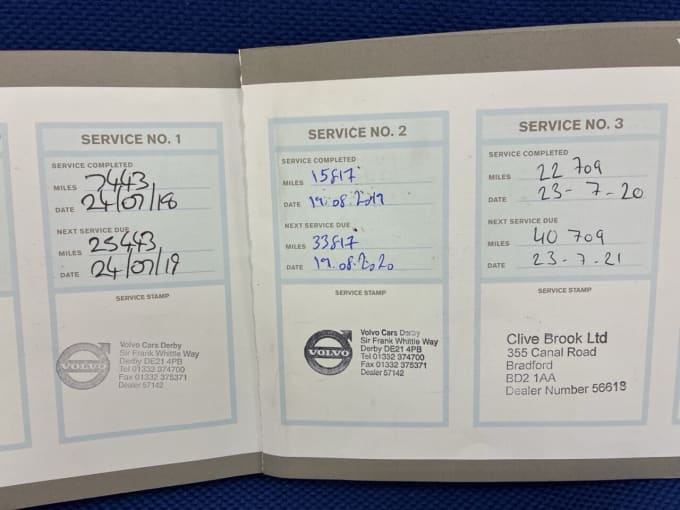 SERVICE NO. 1
SERVICE COMPLETED
MILES 7443
DATE 24/07/18
NEXT SERVICE DUE
MILES 25443
DATE 24/07/19
SERVICE STAMP
VOLVO
Volvo Cars Derby
Sir Frank Whittle Way
Derby DE21 4PB
Tel 01332 374700
Fax 01332 375371
Dealer 57142
SERVICE NO. 2
SERVICE COMPLETED
MILES 15817
DATE 19.08.2019
NEXT SERVICE DUE
MILES 33817
DATE 19.08.2020
SERVICE STAMP
VOLVO
Volvo Cars Derby
Sir Frank Whittle Way
Derby DE21 4PB
Tel 01332 374700
Fax 01332 375371
Dealer 57142
SERVICE NO. 3
SERVICE COMPLETED
MILES 22 709
DATE 23-7-20
NEXT SERVICE DUE
MILES 40 709
DATE 23-7-21
SERVICE STAMP
Clive Brook Ltd
355 Canal Road
Bradford
BD2 1AA
Dealer Number 56618